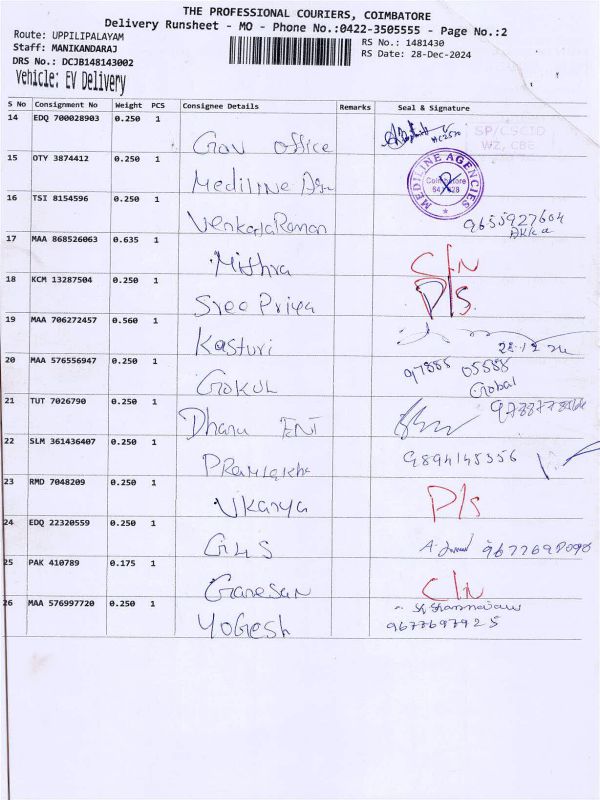 THE PROFESSIONAL COURIERS, COIMBATORE
Delivery Runsheet - MO - Phone No.:0422-3505555 - Page No.:2
Route: UPPILIPALAYAM
Staff: MANIKANDARAJ
DRS No.: DCJB148143002
Vehicle: EV Delivery
RS No.: 1481430
RS Date: 28-Dec-2024
S No Consignment No Weight PCS Consignee Details Remarks Seal & Signature
14 EDQ 700028903 0.250 1 Gov office
SP/CSCID
WZ, CBE
15 OTY 3874412 0.250 1 Mediline
MEDILINE AGENCIES
Coimbatore
16 TSI 8154596 0.250 1 VenkadaRaman
9655927604
AKKA
17 MAA 868526063 0.635 1 Mithra C/N
18 KCM 13287504 0.250 1 Sree Priya D/S
19 MAA 706272457 0.560 1 Kasturi
28-12-24
20 MAA 576556947 0.250 1 Gokul 97888 05588
Gobal
21 TUT 7026790 0.250 1 Dhanu ENT
22 SLM 361436407 0.250 1 9894148356
23 RMD 7048209 0.250 1 Vkarya P/S
24 EDQ 22320559 0.250 1
25 PAK 410789 0.175 1 Ganesan C/N
26 MAA 576997720 0.250 1 YOGESH
9677697925